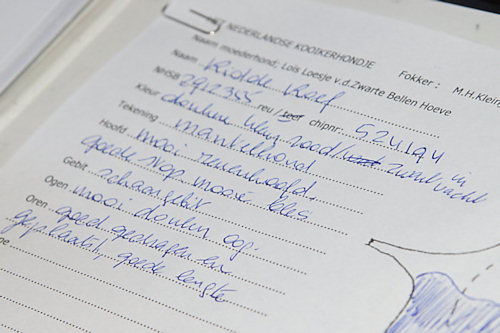 NEDERLANDSE KOOIKERHONDJE
Fokker: M.H.Klein
Naam moederhond; Lois Loesje v.d.Zwarte Bellen Hoeve
Naam
NHSB 2912355 reu / teef chipnr: 524194
Kleur donker rood / zwart in vacht
Tekening mantelhond
Hoofd mooi reuenhoofd.
goede stop mooie bles
Gebit schaargebit
Ogen mooi donker oog.
Oren goed gedragen en
geplaatst, goede lengte